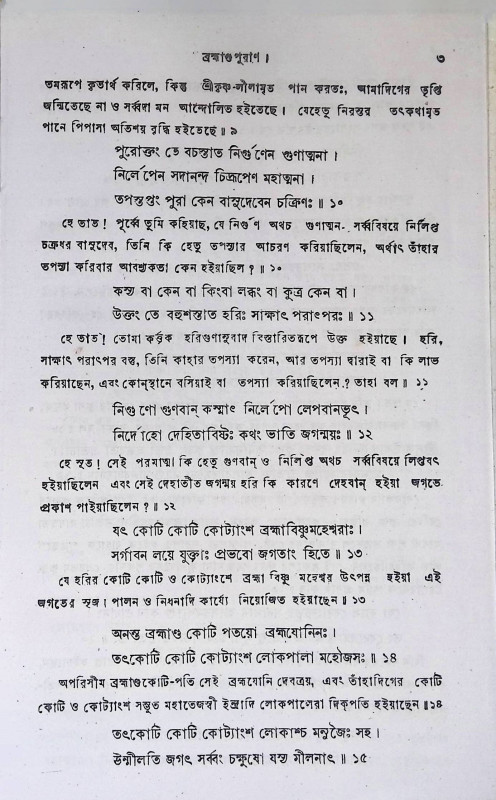 ব্রহ্মাণ্ডপুরাণ। ৩
তমরূপে কৃতার্থ করিলে, কিন্তু শ্রীকৃষ্ণ-লীলামৃত পান করতঃ, আমাদিগের তৃপ্তি
জন্মিতেছে না ও সর্ব্বদা মন আন্দোলিত হইতেছে। যেহেতু নিরন্তর তৎকথামৃত
পানে পিপাসা অতিশয় বৃদ্ধি হইতেছে॥ ৯
পুরোক্তং তে বচস্তাত নির্গুণেন গুণাত্মনা।
নির্লেপেন সদানন্দ চিদ্রূপেণ মহাত্মনা।
তপস্তপ্তং পুরা কেন বাসুদেবেন চক্রিণঃ॥ ১০
হে তাত! পূর্ব্বে তুমি কহিয়াছ, যে নির্গুণ অথচ গুণাত্মন- সর্ব্ববিষয়ে নির্লিপ্ত
চক্রধর বাসুদেব, তিনি কি হেতু তপস্যার আচরণ করিয়াছিলেন, অর্থাৎ তাঁহার
তপস্যা করিবার আবশ্যকতা কেন হইয়াছিল?॥ ১০
কস্য বা কেন বা কিংবা লব্ধং বা কুত্র কেন বা।
উক্তং তে বহুশস্তাত হরিঃ সাক্ষাৎ পরাৎপরঃ॥ ১১
হে তাত! তোমা কর্ত্তৃক হরিগুণানুবাদ বিস্তারিতরূপে উক্ত হইয়াছে। হরি,
সাক্ষাৎ পরাৎপর বস্তু, তিনি কাহার তপস্যা করেন, আর তপস্যা দ্বারাই বা কি লাভ
করিয়াছেন, এবং কোন্‌স্থানে বসিয়াই বা তপস্যা করিয়াছিলেন? তাহা বল॥ ১১
নির্গুণো গুণবান্ কস্মাৎ নির্লেপো লেপবানভূৎ।
নির্দেহো দেহিতাবিষ্টঃ কথং ভাতি জগন্ময়ঃ॥ ১২
হে সূত! সেই পরমাত্মা কি হেতু গুণবান্ ও নির্লিপ্ত অথচ সর্ব্ববিষয়ে লিপ্তবৎ
হইয়াছিলেন এবং সেই দেহাতীত জগন্ময় হরি কি কারণে দেহবান্ হইয়া জগতে
প্রকাশ পাইয়াছিলেন?॥ ১২
যৎ কোটি কোটি কোট্যাংশ ব্রহ্মাবিষ্ণুমহেশ্বরাঃ।
সর্গাবন লয়ে যুক্তাঃ প্রভবো জগতাং হিতে॥ ১৩
যে হরির কোটি কোটি ও কোট্যাংশে ব্রহ্মা বিষ্ণু মহেশ্বর উৎপন্ন হইয়া এই
জগতের সৃজ। পালন ও নিধনাদি কার্য্যে নিয়োজিত হইয়াছেন॥ ১৩
অনন্ত ব্রহ্মাণ্ড কোটি পতয়ো ব্রহ্মযোনিনঃ।
তৎকোটি কোটি কোট্যাংশ লোকপালা মহৌজসঃ॥ ১৪
অপরিসীম ব্রহ্মাণ্ডকোটি-পতি সেই ব্রহ্মযোনি দেবত্রয়, এবং তাঁহাদিগের কোটি
কোটি ও কোট্যাংশ সম্ভূত মহাতেজস্বী ইন্দ্রাদি লোকপালেরা দিক্‌পতি হইয়াছেন॥১৪
তৎকোটি কোটি কোট্যাংশ লোকাশ্চ মনুজৈঃ সহ।
উন্মীলতি জগৎ সর্ব্বং চক্ষুষো যস্য মীলনাৎ॥ ১৫